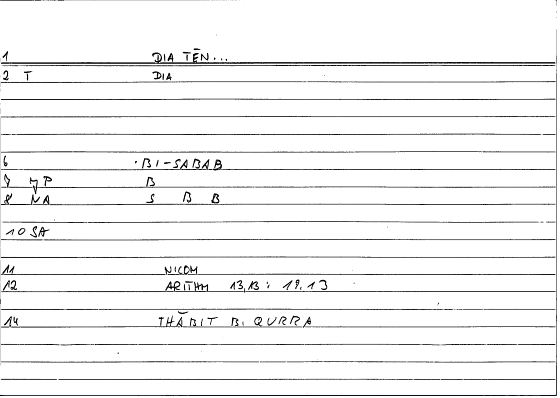 1 DIA TĒN...
2 T DIA
6 ·BI-SABAB
7 MP B
8 NA S B B
10 SA
11 NICOM
12 ARITHM 13,13 : 19,13
14 THĀBIT B. QURRA